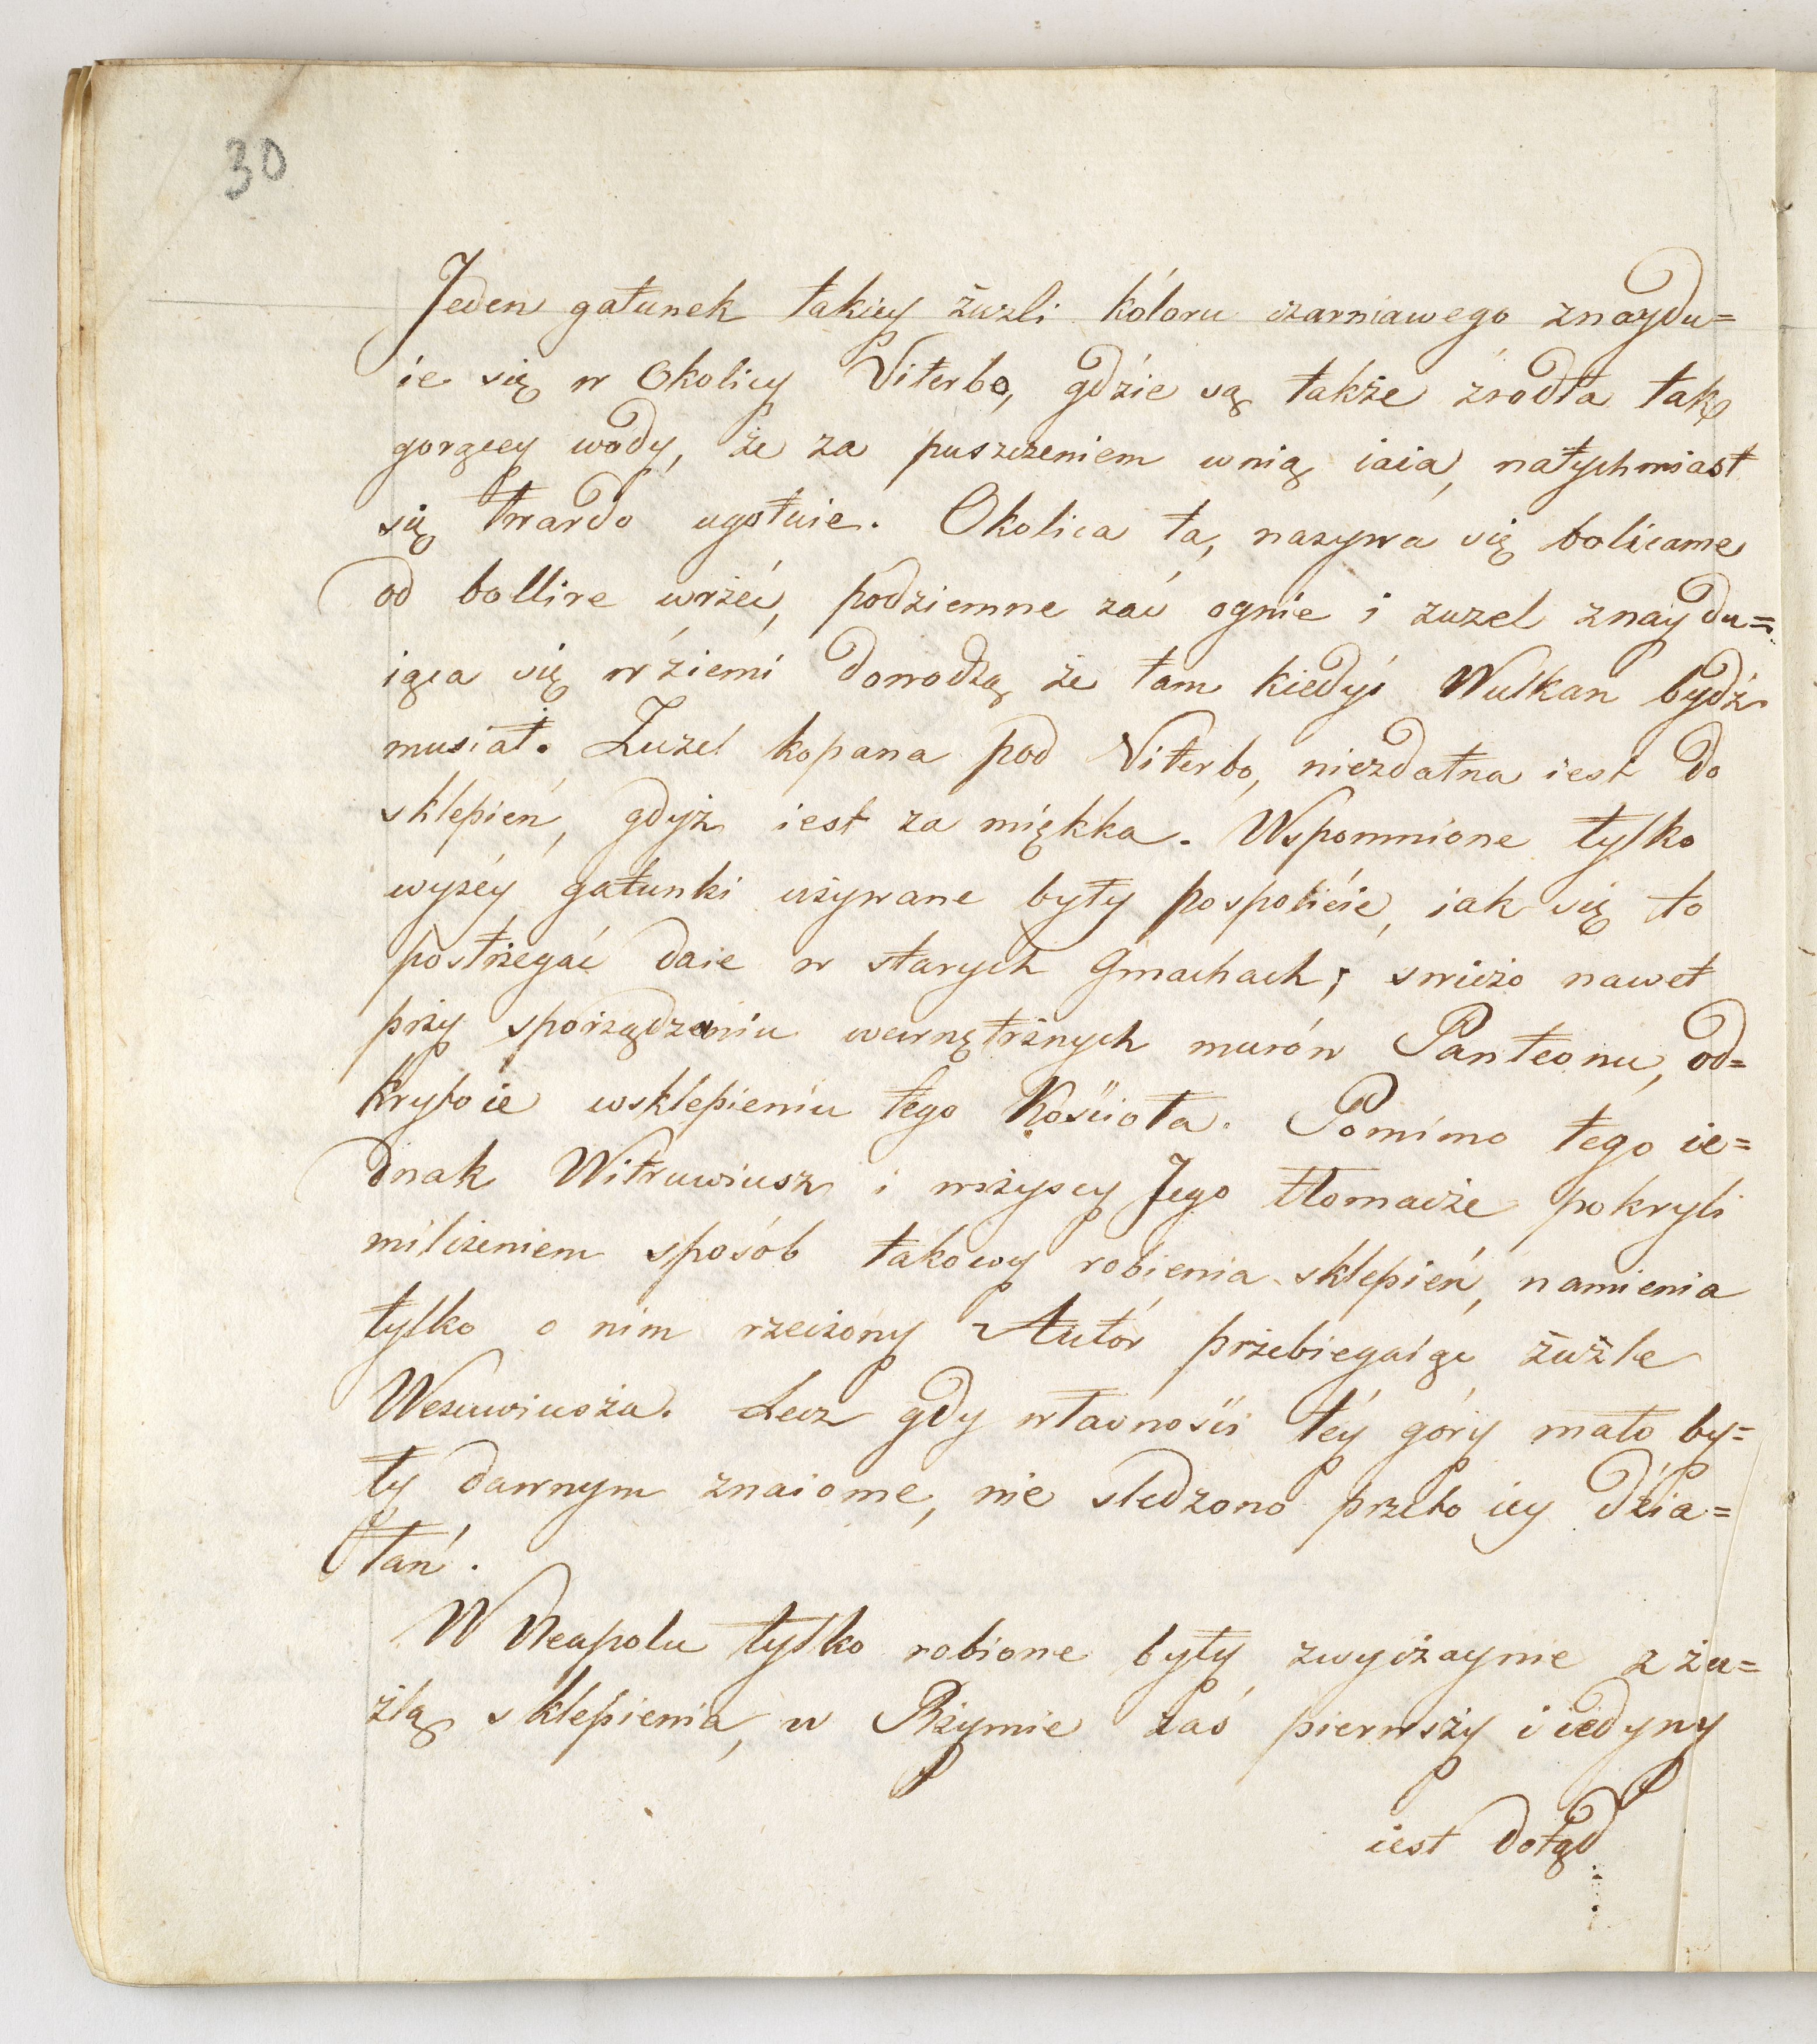 30
Jeden gatunek takiey żuzli kóloru czarniawego znaydu=
ie się w Okolicy Viterbo, gdzie są także źrodła tak
gorącey wody, że za puszczeniem wnią iaia, natychmiast
się twardo ugotuie. Okolica ta, nazywa się bolicame
od bollire wrzéć, podziemne zaś ognie i zuzel znaydu=
iąca się w źiemi dowodzą że tam kiedyś Wulkan bydź
musiał. Zuzel kopana pod Viterbo, niezdatna iest do
sklepień, gdyż iest za miękka. Wspomnione tylko
wyzéy gatunki używane były pospolićie, iak się to
postrzegać daie w starych Gmachach; swieżo nawet
przy sporządzaniu wewnętrznych murów Panteonu, od=
kryto ie wsklepieniu tego Kościoła. Pomimo tego ie=
dnak Witruwiusz i wszyscy Jego tłomacze pokryli
milczeniem sposób takowy robienia sklepień, namienia
tylko o nim rzeczony Autór przebiegaiąc żużle
Wezuwiusza. Lecz gdy własności téy góry mało by=
ły dawnym znaiome, nie sledzono przeto iey dzia=
łań.
W Neapolu tylko robione były zwyczaynie z żu=
żlą sklepienia, w Rzymie zaś pierwszy i iedyny
iest dotąd